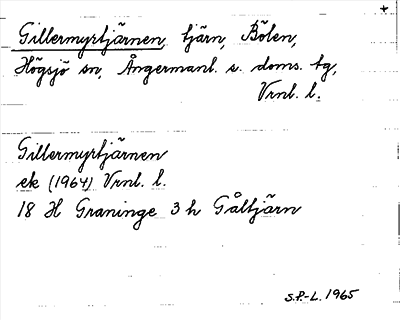 Gillermyrtjärnen, tjärn, Bölen,
Högsjö sn, Ångermanl. s. doms. tg,
Vrnl. l.
Gillermyrtjärnen
ek (1964) Vrnl. l.
18 H Graninge 3 h Gåltjärn
S.P.-L. 1965